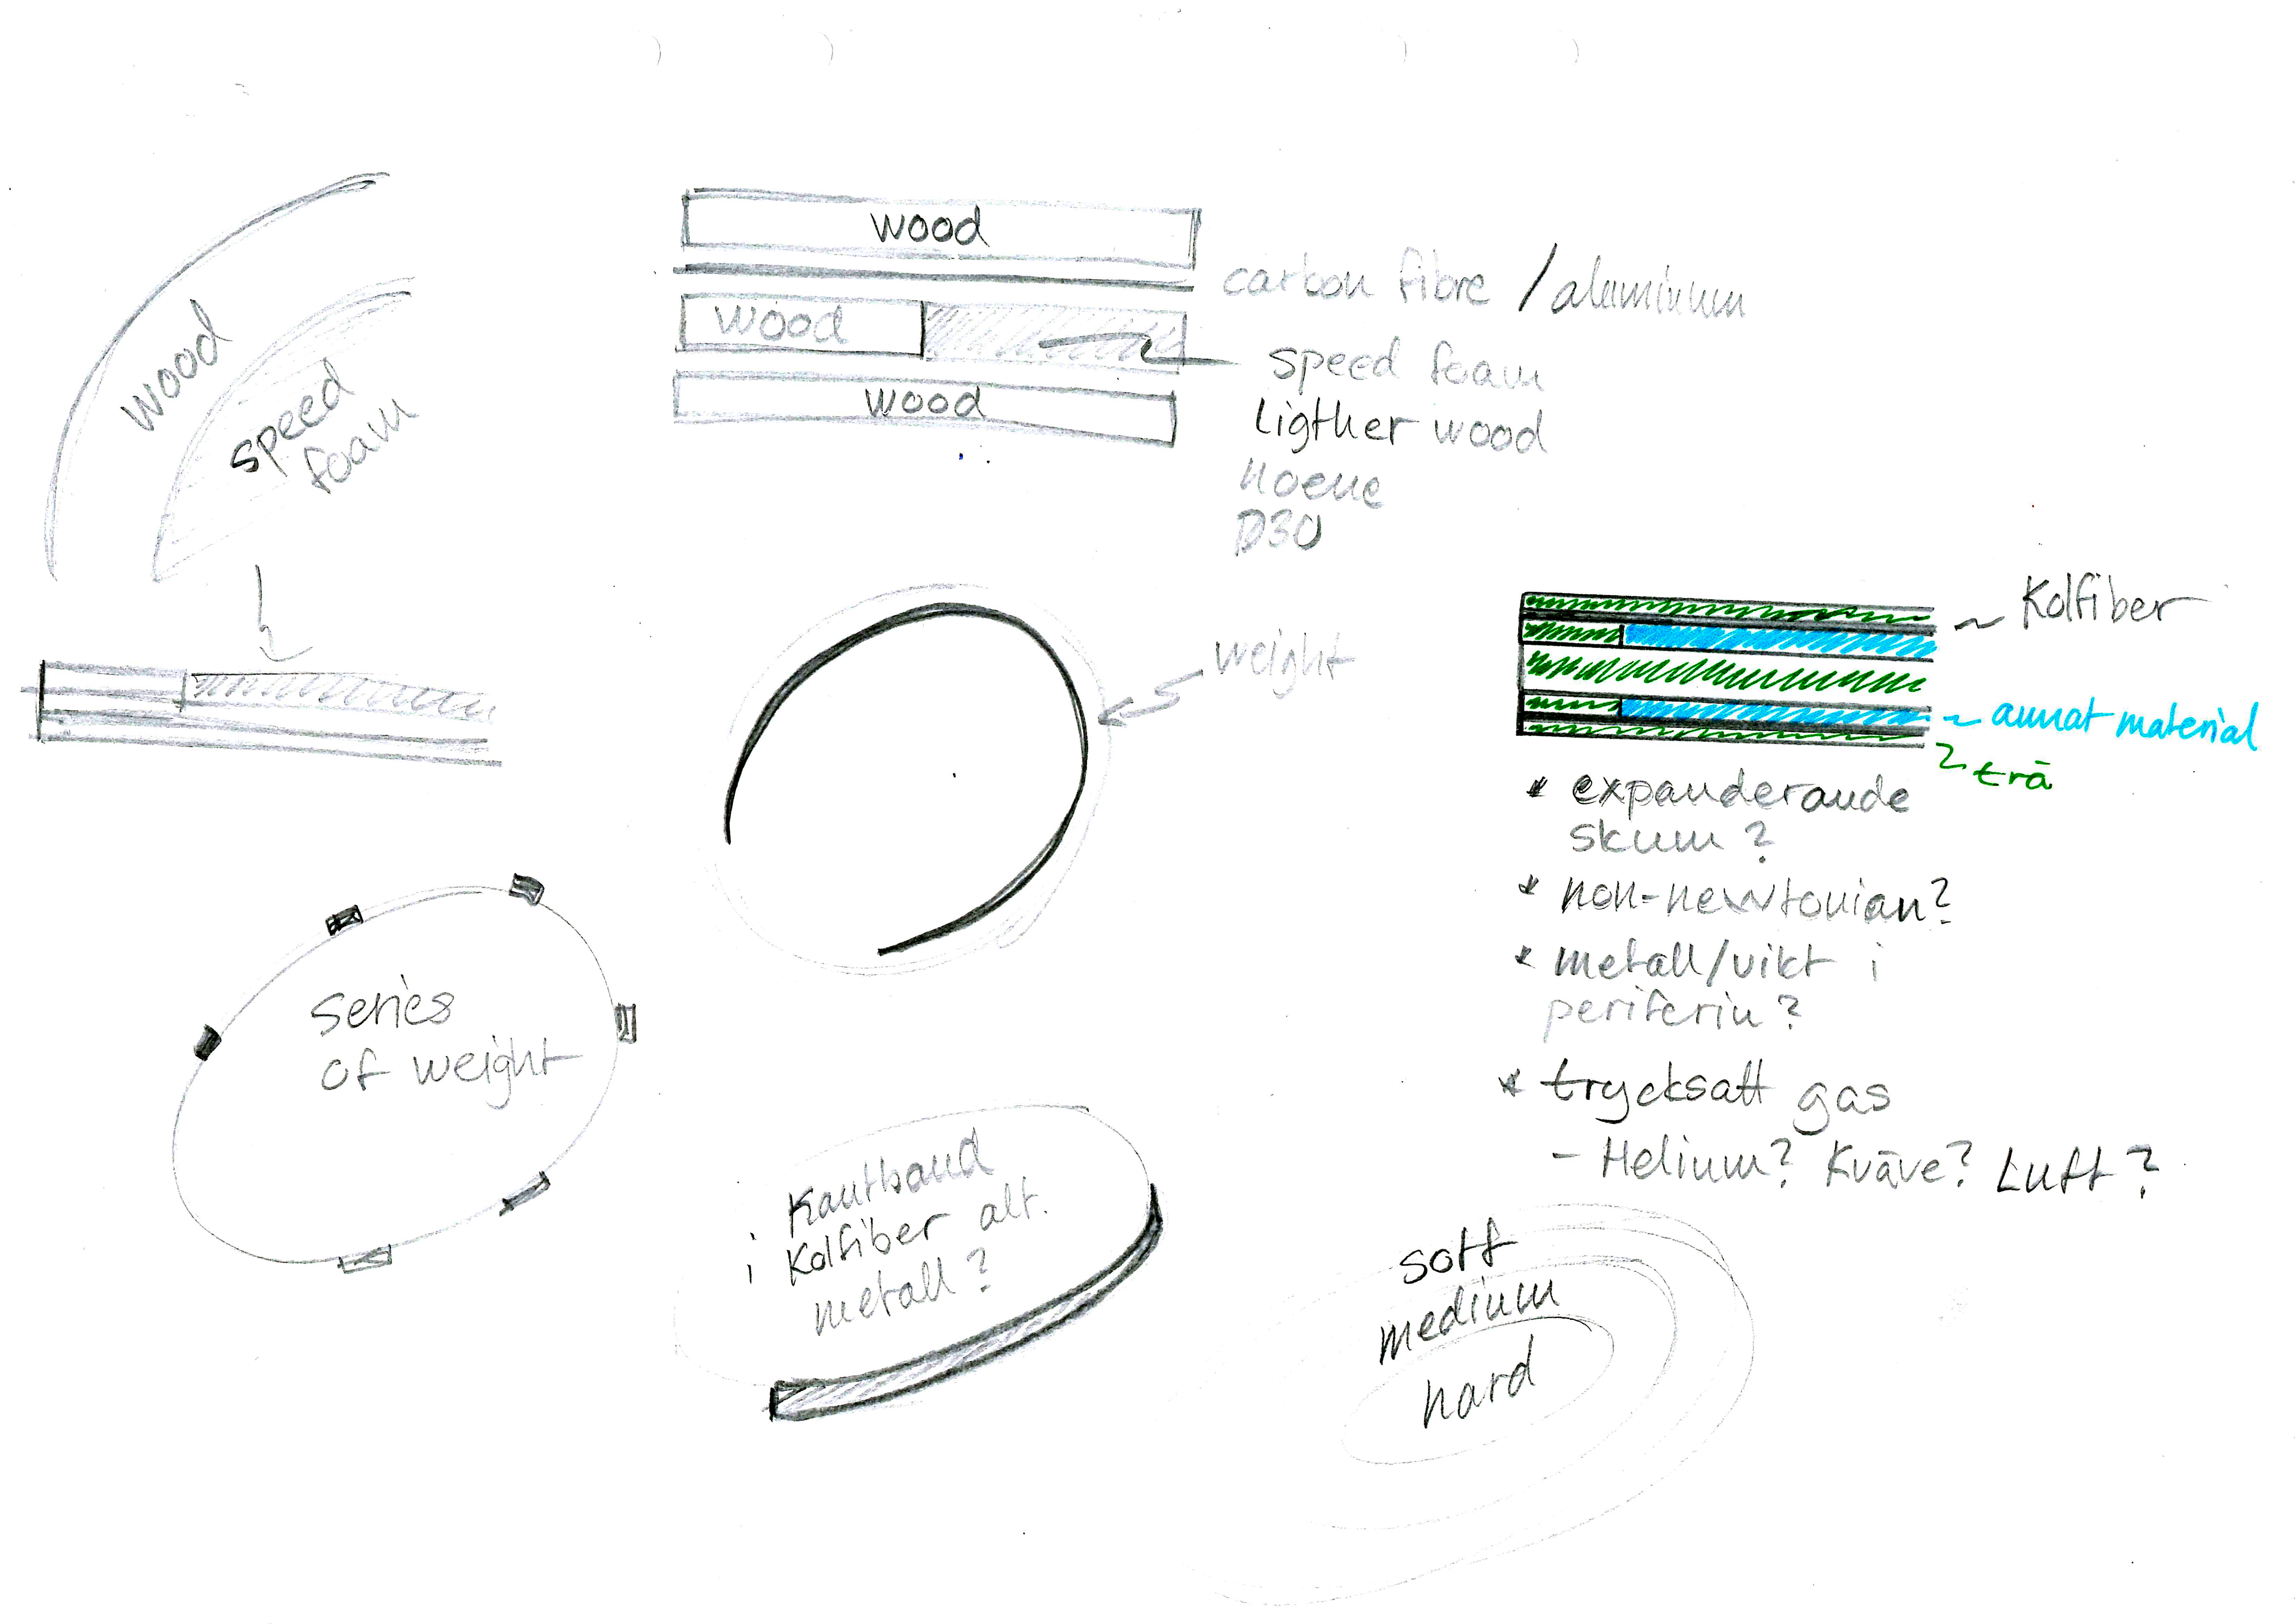 wood
speed
foam
wood
carbon fibre / aluminium
wood
speed foam
wood
Ligther wood
noene
D3O
weight
Kolfiber
annat material
trä
* expanderande
skum?
* non-newtonian?
* metall/vikt i
periferin?
* trycksatt gas
- Helium? Kväve? Luft?
series
of weight
i Kantband
Kolfiber alt.
metall?
soft
medium
hard